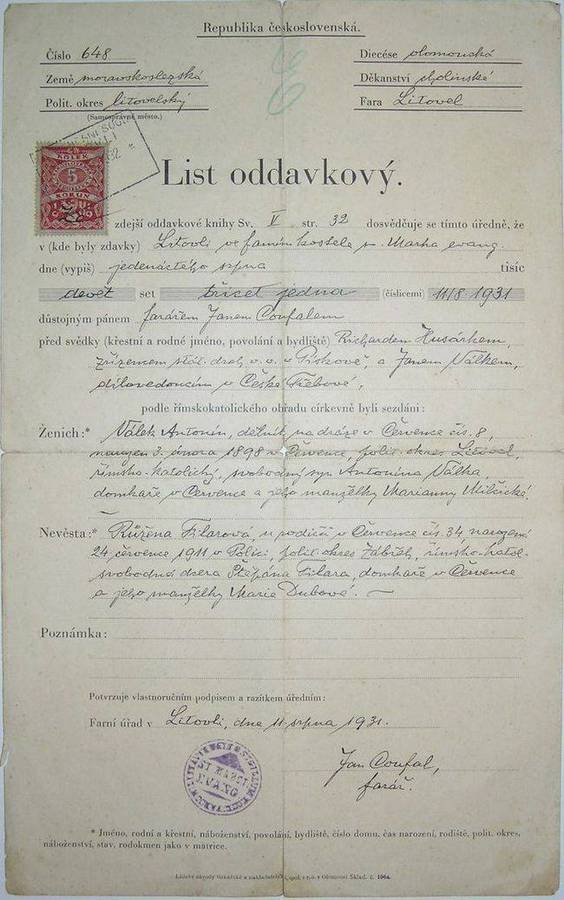 Republika československá.
Číslo 648
Diecése olomoucká
Země moravskoslezská
Děkanství cholinské
Polit. okres litovelský
Fara Litovel
(Samosprávné město.)
KOLEK
5
KORUN
List oddavkový.
zdejší oddavkové knihy Sv. II str. 32 dosvědčuje se tímto úředně, že
v (kde byly zdavky) Litovli ve farním kostele sv. Marka evang.
dne (vypiš) jedenáctého srpna tisíc
devět set třicet jedna (číslicemi) 11/8 1931
důstojným pánem farářem Janem Coufalem
před svědky (křestní a rodné jméno, povolání a bydliště) Richardem Husárkem,
zřízencem stát. drah v. v. v Pískově, a Janem Válkem,
dílovedoucím v České Třebové,
podle římskokatolického obřadu církevně byli sezdáni:
Ženich:* Válek Antonín, dělník na dráze v Července čís. 8,
narozen 3. února 1898 v Července, polit. okres Litovel,
římsko-katolický, svobodný syn Antonína Válka
domkaře v Července a jeho manželky Marianny Milčické.
Nevěsta:* Růžena Filarová u rodičů v Července čís. 34 narozená
24. července 1911 v Polici, polit. okres Zábřeh, římsko-katol.
svobodná dcera Štěpána Filara, domkaře v Července
a jeho manželky Marie Dubové. —
Poznámka:
Potvrzuje vlastnoručním podpisem a razítkem úředním:
Farní úřad v Litovli, dne 11 srpna 1931.
Jan Coufal,
farář.
* Jméno, rodní a křestní, náboženství, povolání, bydliště, číslo domu, čas narození, rodiště, polit. okres,
náboženství, stav, rodokmen jako v matrice.
Lidové závody tiskařské a nakladatelské, spol. s r. o. v Olomouci Sklad. č.